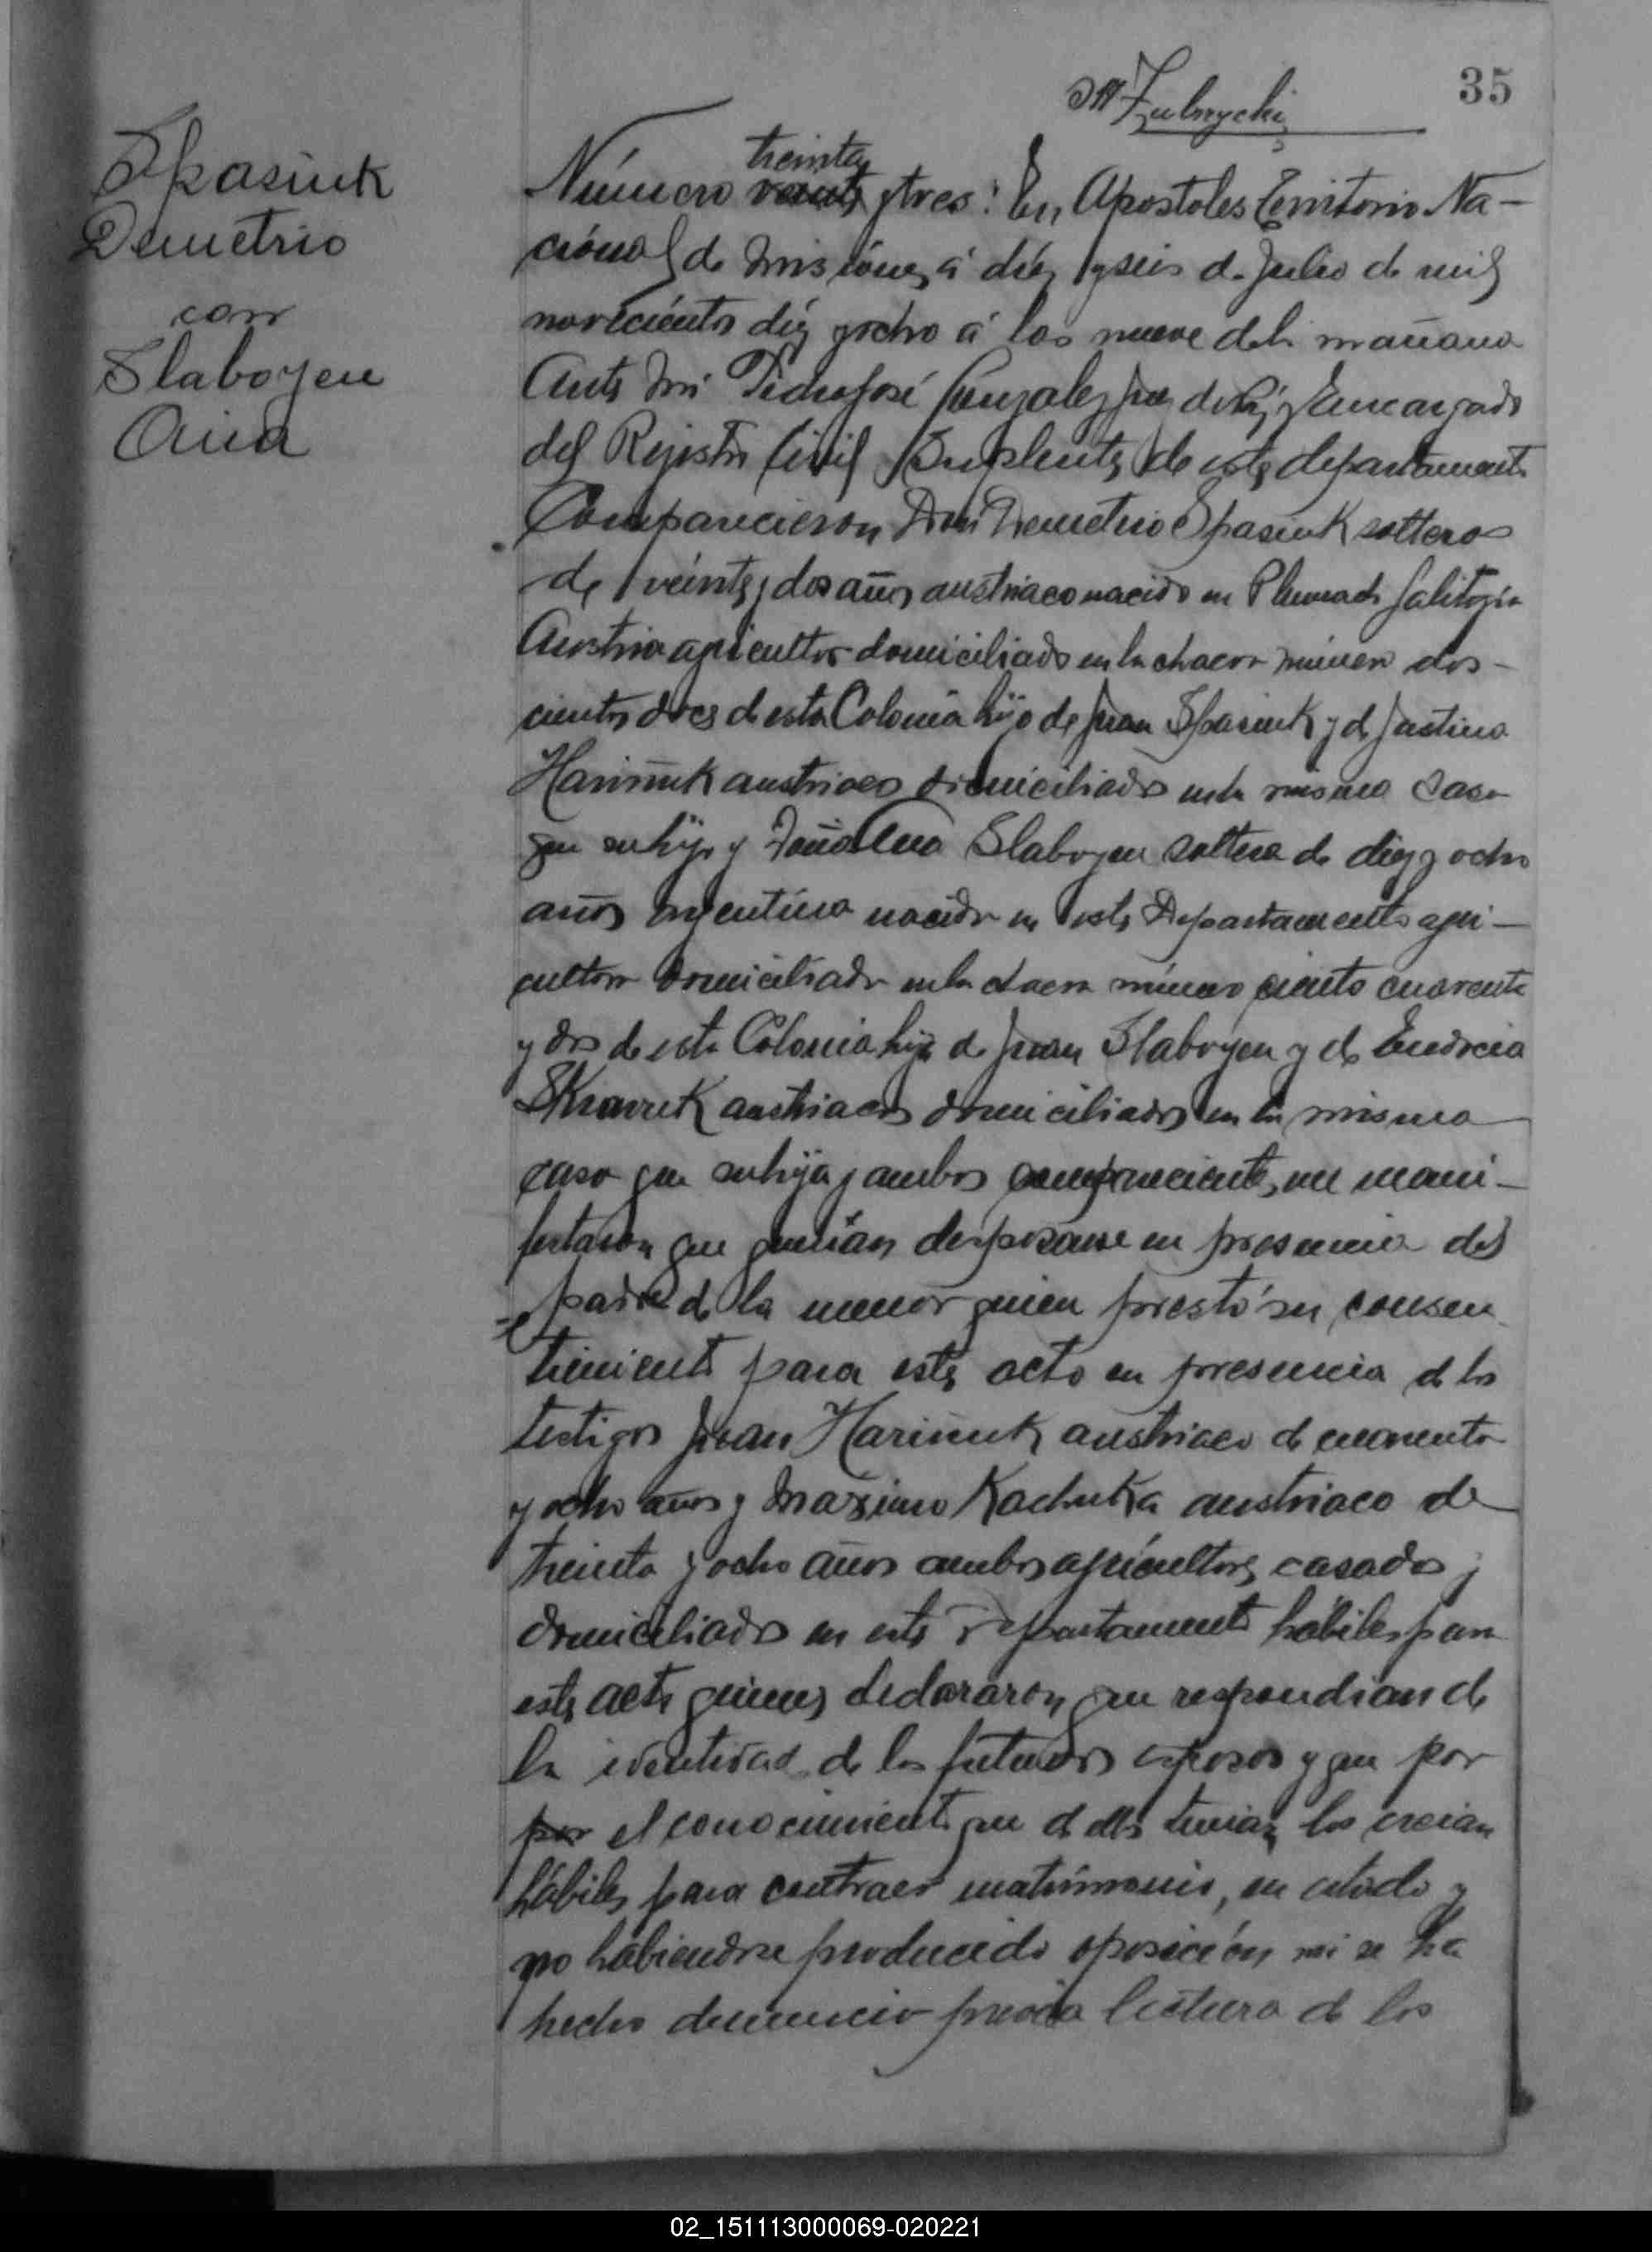 35
M Zubrzycki
Spasiuk
Demetrio
con
Slaboyen
Ana
treinta
Número veinte ytres: En Apostoles Territorio Na-
ciónal de Misiónes á diéz y seis de Julio de mil
noveciéntos diéz y ocho á las nueve dela mañana
Ante Mi Pedro José Gonzalez Juez de Paz y Encargado
del Rejistro Civil Suplente de este departamento
Comparecieron Don Demetrio Spasiuk soltero
de veinte y dos años austriaco nacido en
Austria agricultor domiciliado en la chacra número dos-
cientos doce de esta Colonia hijo de Juan Spasiuk y de Justina
Hariñuk austriacos domiciliados en la misma casa
que su hijo y Doña Ana Slaboyen soltera de diez y ocho
años argentina nacida en este Departamento agri-
cultora domiciliada en la chacra número ciento cuarenta
y dos de esta Colonia hija de Juan Slaboyen y de Eudocia
austriacos domiciliados en la misma
casa que su hija y ambos comparecientes me mani-
festaron que querian desposarse en presencia del
padre de la menor quien prestó su consen
timiento para este acto en presencia de los
testigos Juan Hariñuk austriaco de cuarenta
y ocho años y Maximo Kachuka austriaco de
treinta y ocho años ambos agricultores casados y
domiciliados en este departamento hábiles para
este acto quienes declararon que respondian de
la identidad de los futuros esposos y que por
por el conocimiento que de ellos tenian los creian
hábiles para contraer matrimonio, en estado y
no habiendose producido oposición ni se ha
hecho denuncia previa lectura de los
02_151113000069-020221